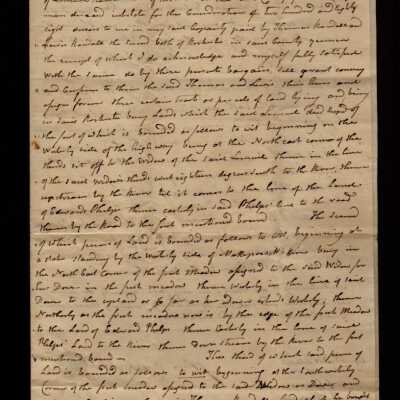 man dec'd intestate for the Consideration of ten hundred and eighty
eight dollars to me in my said Capacity paid by Thomas Randall and
Lewis Randall the second both of Rochester in said County yeomen
the receipt of which I do acknowledge and myself fully satisfied
with the same do by these presents bargain, sell grant convey
and confirm to them the said Thomas and Lewis their heirs and
assigns forever three certain tracts or parcels of land lying and being
in said Rochester being Lands which the said Lemuel died seized of
the first of which is bounded as follows to wit beginning on the
Westerly side of the high way being at the Northeast corner of the
thirds set off to the Widow of the said Lemuel thence in the line
of the said widow's thirds west eighteen degrees south to the River, thence
up stream by the River til it comes to the line of the Land
of Edward Phelps thence easterly in said Phelps' line to the road
thence by the Road to the first mentioned bound The second
of which pieces of Land is bounded as follows to wit, beginning at
a stake standing by the Westerly side of River being in
the North East Corner of the first Meadow assigned to the said Widow for
her Dower in the first meadow thence Westerly in the line of said
Dower to the upland or so far as her Dower extends Westerly, thence
Northerly as the first meadow wears by the edge of the first Meadow
to the Land of Edward Phelps thence Easterly in the line of said
Phelps' Land to the River thence Down stream by the River to the first
mentioned bound — The third of which said pieces of
Land is bounded as follows to wit beginning at the Southwesterly
Corner of the first meadow assigned to the said Widow as Dower and